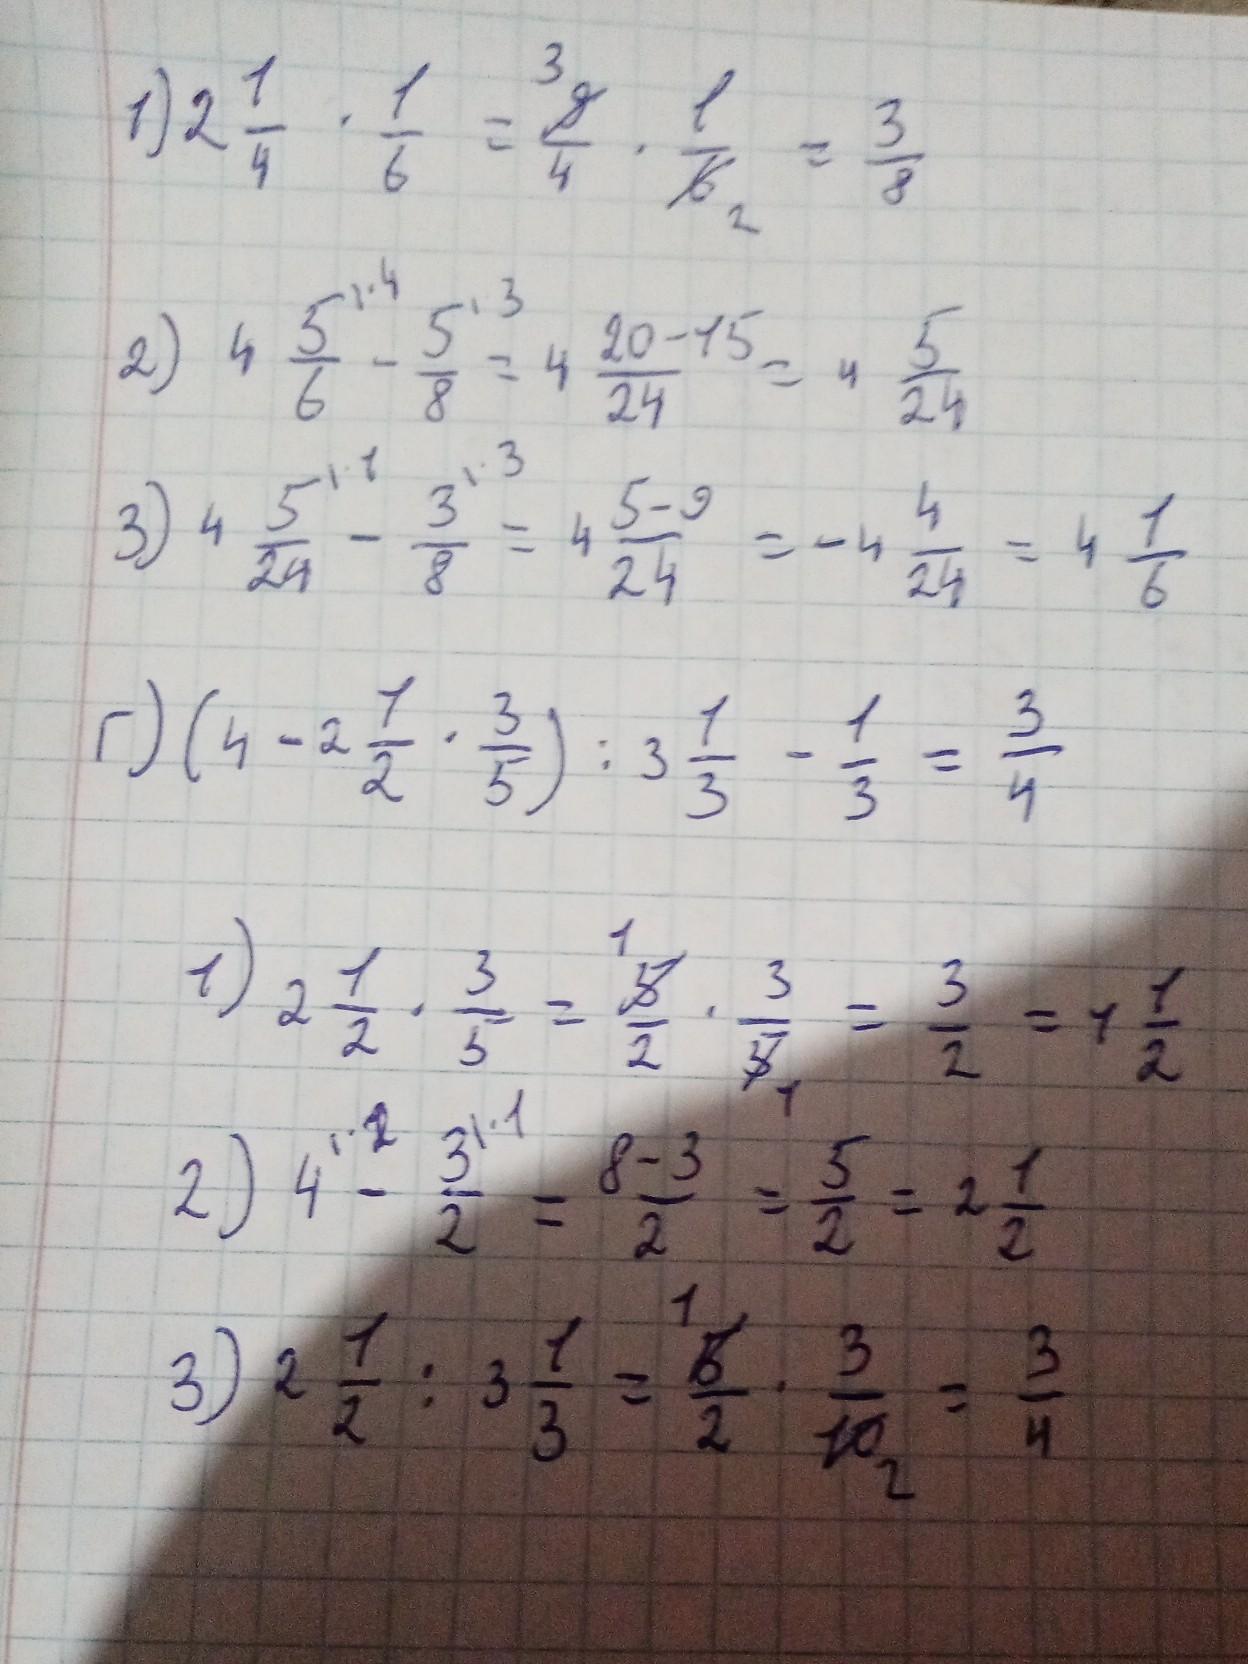 1) 2 1/4 · 1/6 = 9/4 · 1/6 = 3/8
2) 4 5/6 - 5/8 = 4 20-15/24 = 4 5/24
3) 4 5/24 - 3/8 = 4 5-9/24 = -4 4/24 = 4 1/6
г) (4 - 2 1/2 · 3/5) : 3 1/3 - 1/3 = 3/4
1) 2 1/2 · 3/5 = 5/2 · 3/5 = 3/2 = 1 1/2
2) 4 - 3/2 = 8-3/2 = 5/2 = 2 1/2
3) 2 1/2 : 3 1/3 = 5/2 · 3/10 = 3/4